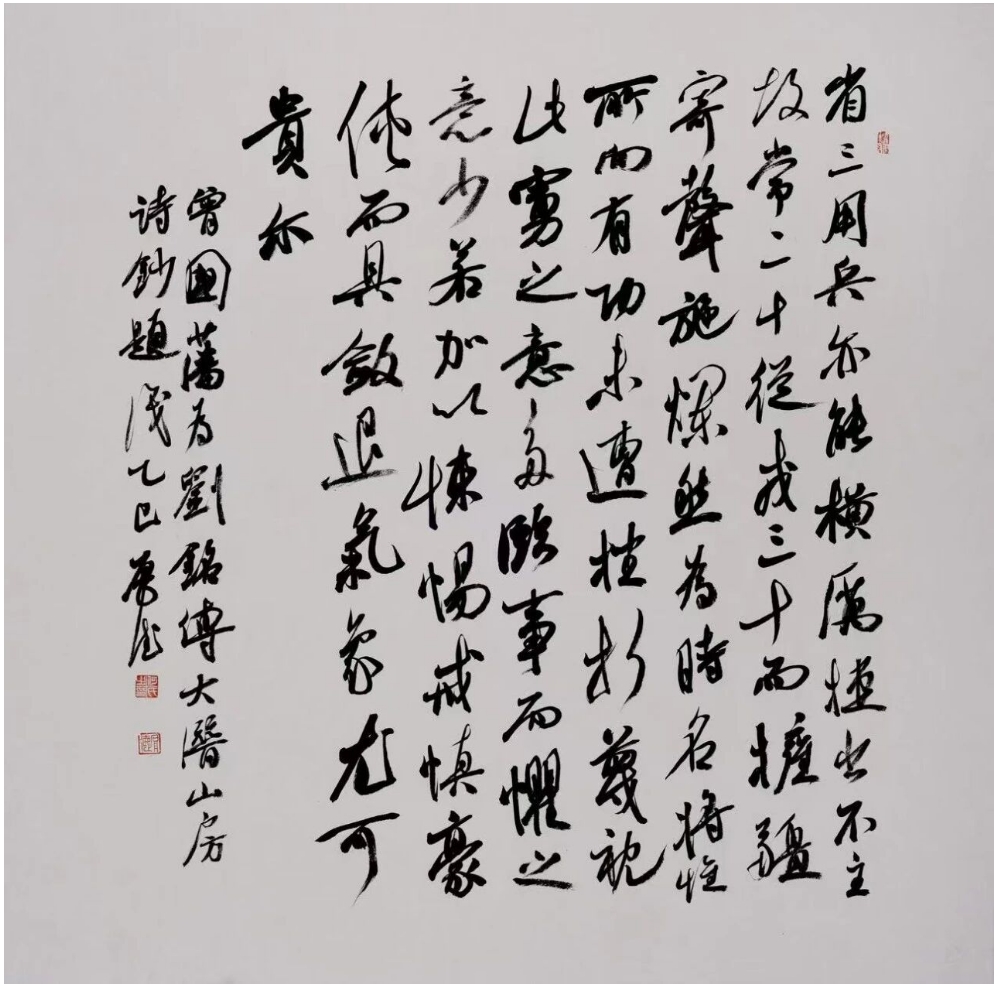 省三用兵亦能橫厲捷出不主
故常二十從戎三十而擁疆
寄聲施爛然為時名將惟
所向有功未遭挫折蔑視
此虜之意多臨事而懼之
意少若加以悚惕戒慎豪
俠而具斂退氣象尤可
貴尔
曾國藩為劉銘傳大潛山房
詩鈔題歲乙巳